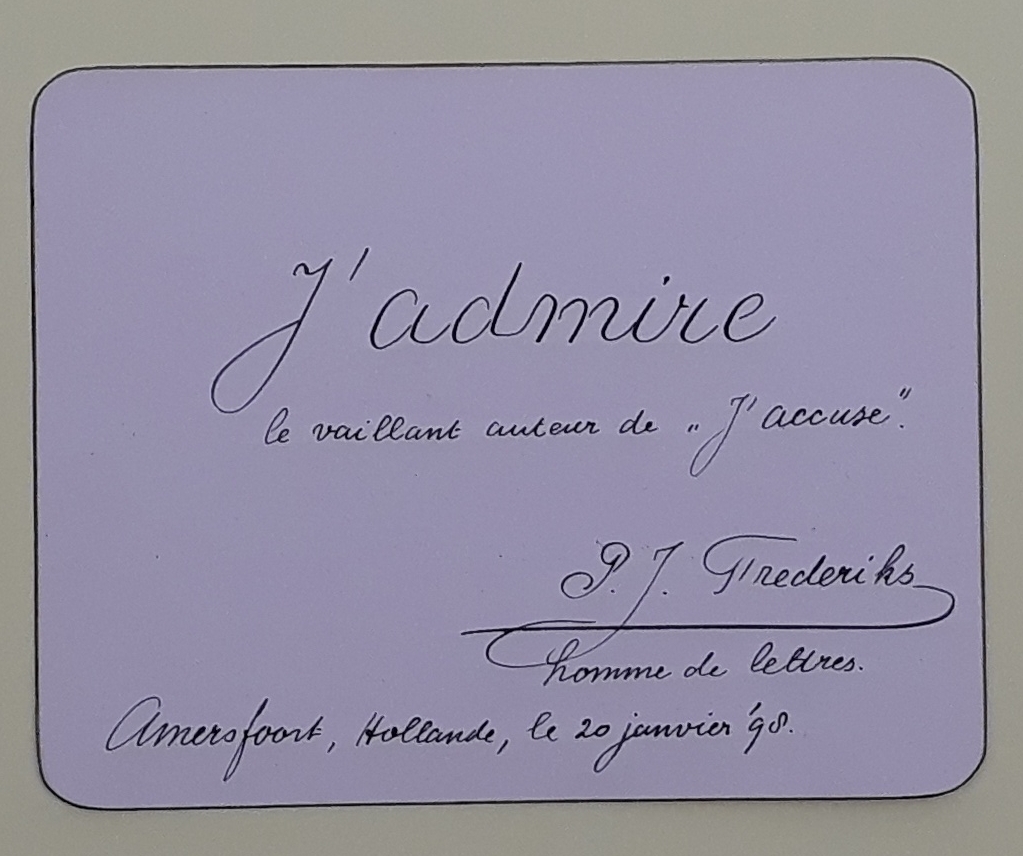 J'admire
le vaillant auteur de „J'accuse".
P. J. Frederiks
homme de lettres.
Amersfoort, Hollande, le 20 janvier '98.